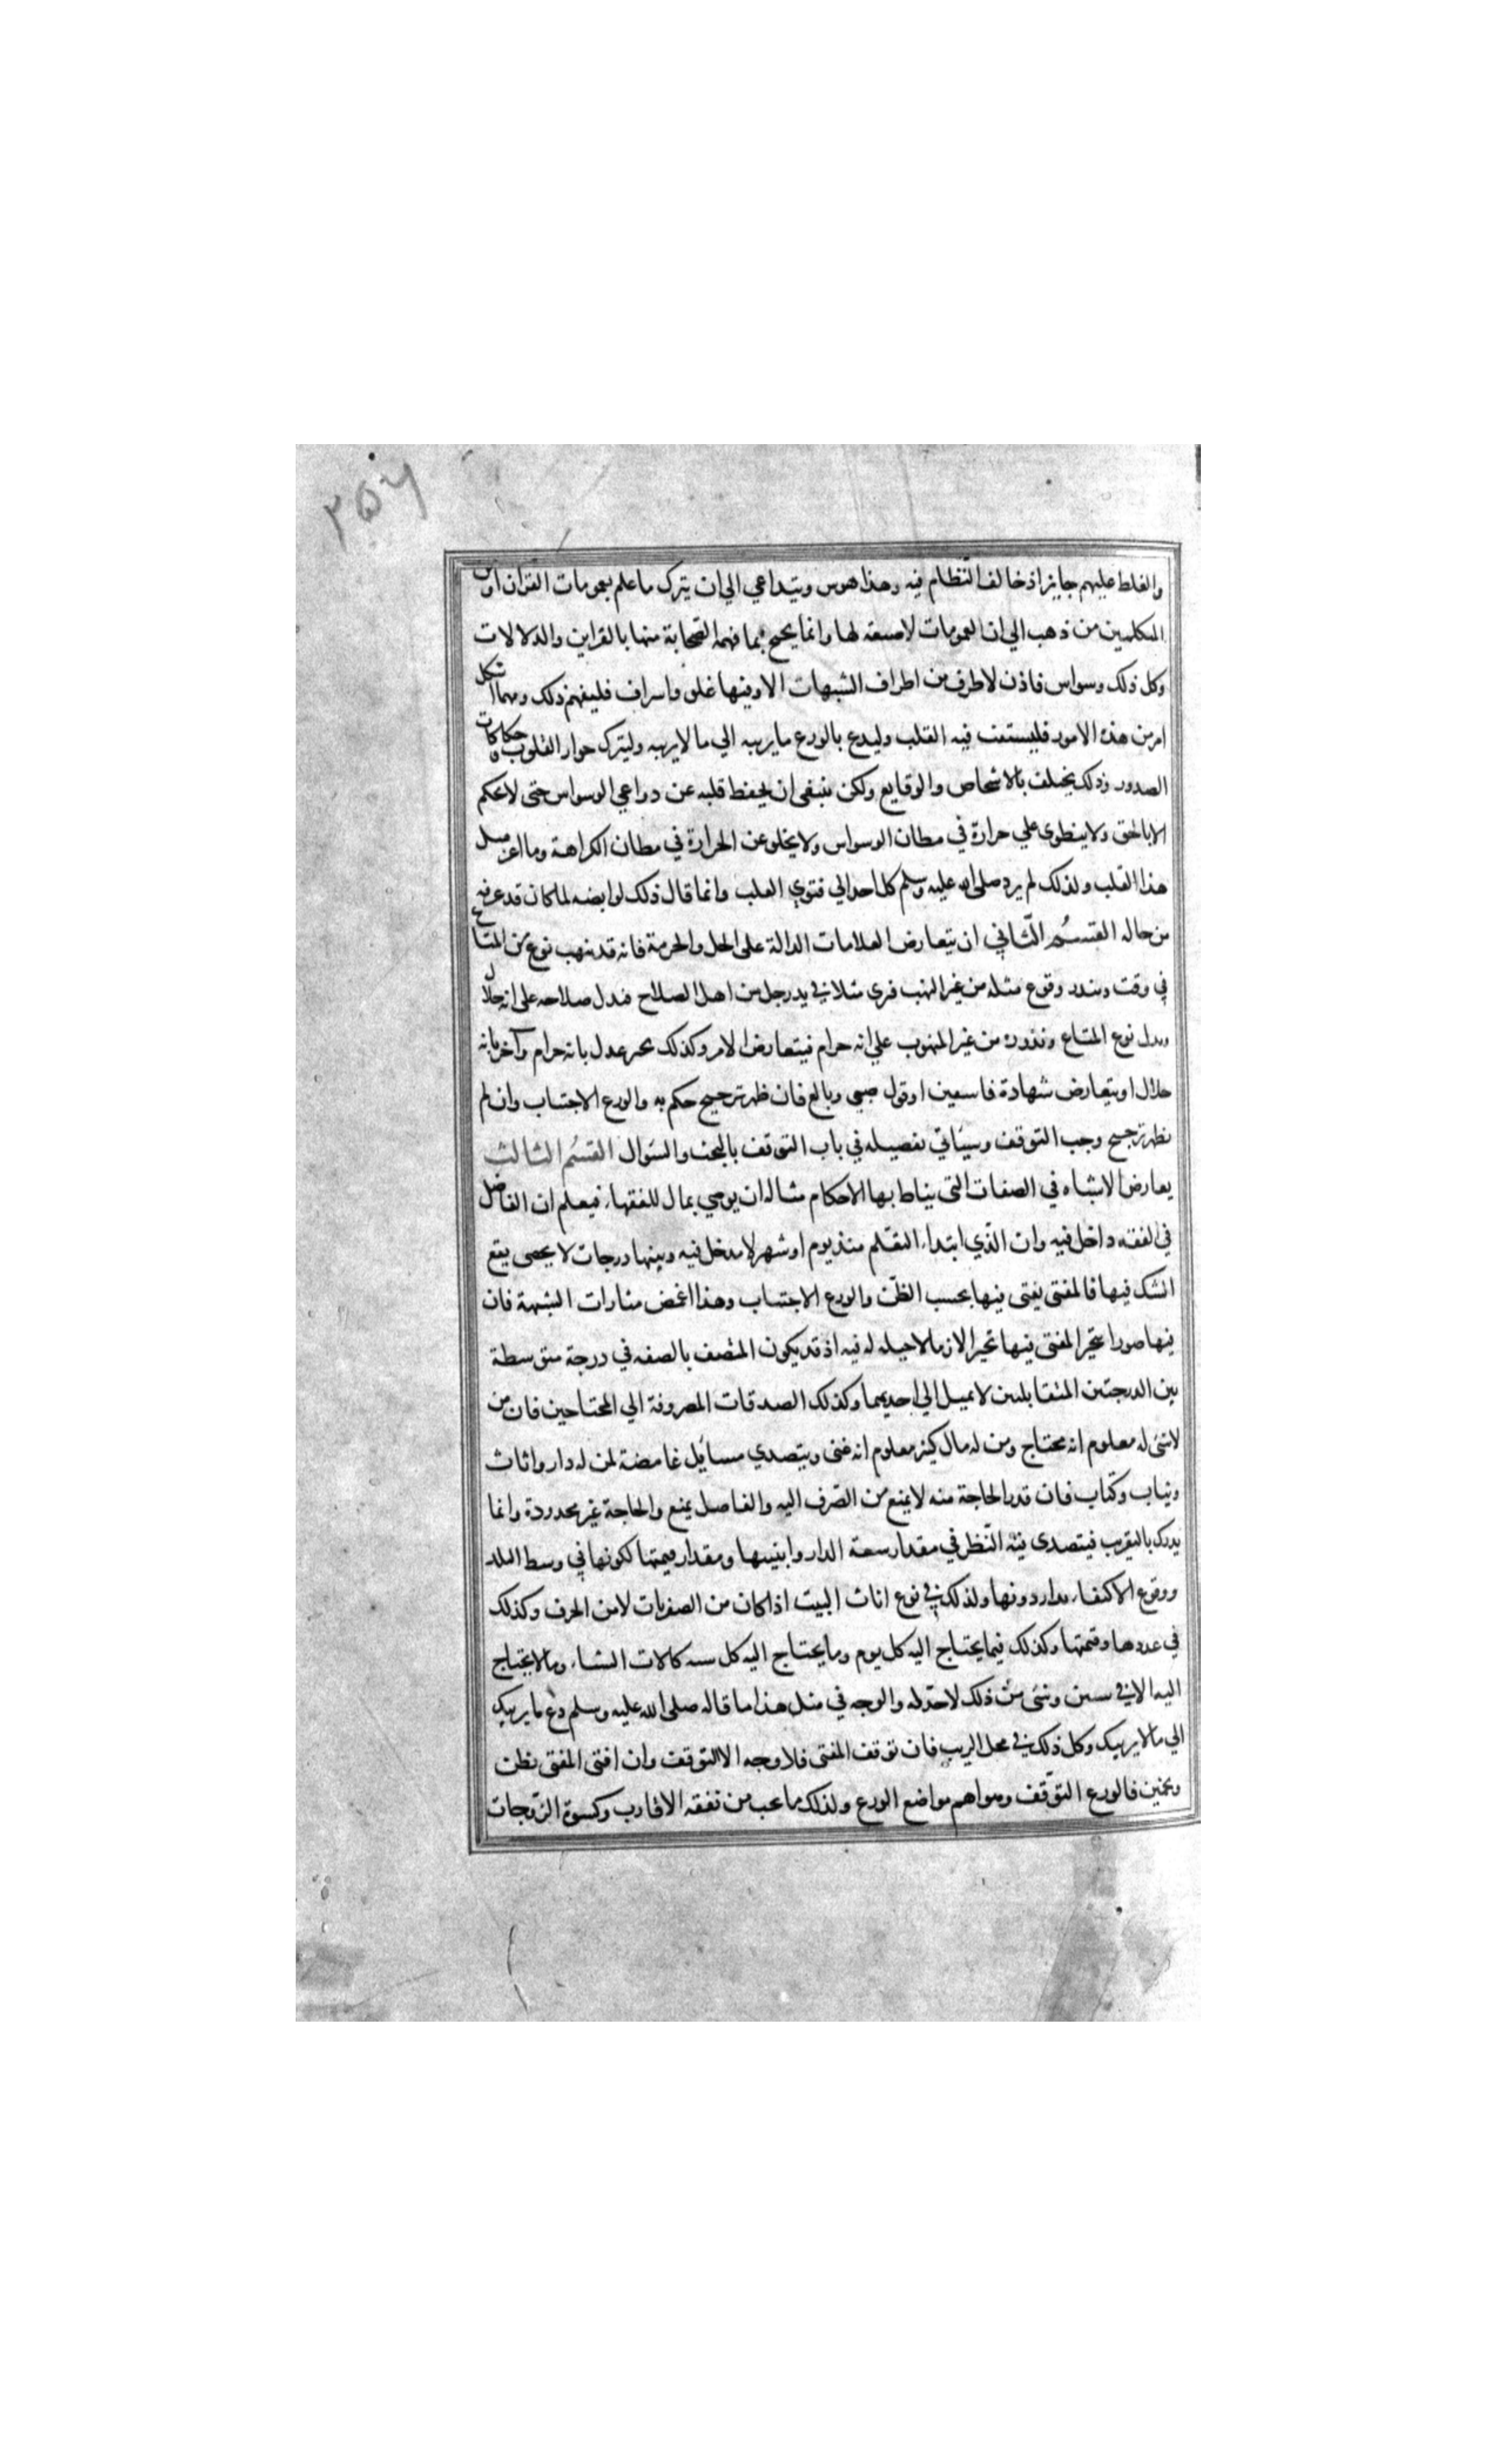 ٢٥٦
والغلط عليهم جايز اذ خالف النظام فيه وهذا هوس ويتداعي الي ان يترك ما علم بعمومات القران اذ من
المتكلمين من ذهب الي ان العمومات لا صيغة لها وانما يحتج بما فهمه الصحابة منها بالقراين والدلالات
وكل ذلك وسواس فاذن لا طرف من اطراف الشبهات الا وفيها غلو واسراف فليفهم ذلك ومهما اشكل
امر من هذه الامور فليستفت فيه القلب وليدع بالورع ما يريبه الي ما لا يريبه وليترك حواز القلوب وحكاكات
الصدور وذلك يختلف بالاشخاص والوقايع ولكن ينبغي ان يحفظ قلبه عن دواعي الوسواس حتى لا يحكم
الا بالحق ولا ينطوي علي حرارة في مظان الوسواس ولا يخلو عن الحرارة في مظان الكراهة وما اعز مثل
هذا القلب ولذلك لم يرد صلى الله عليه وسلم كل احد الي فتوي القلب وانما قال ذلك لوابصه لما كان قد عرفه
من حاله القسم الثاني ان يتعارض العلامات الدالة على الحل والحرمة فانه قد ينهب نوع من المتاع
في وقت ويندر وقوع مثله من غير النهب فرى مثلا في يد رجل من اهل الصلاح فيدل صلاحه على انه حلال
ويدل نوع المتاع وندوره من غير المنهوب علي انه حرام فيتعارض الامر وكذلك يخبر عدل بانه حرام وآخر بانه
حلال او يتعارض شهادة فاسقين او قول صبي وبالغ فان ظهر ترجيح حكم به والورع الاجتناب وان لم
يظهر ترجيح وجب التوقف وسياتي تفصيله في باب التوقف بالبحث والسؤال القسم الثالث
يعارض الاشتباه في الصفات التي يناط بها الاحكام مثاله ان يوصي بمال للفقهاء فيعلم ان الفاضل
في الفقه داخل فيه وان الذي ابتداء التعلم منذ يوم او شهر لا يدخل فيه وبينهما درجات لا يحصى يقع
الشك فيها فالمفتى يفتى فيها بحسب الظن والورع الاجتناب وهذا اغمض مثارات الشبهة فان
فيها صورا يتحير المفتى فيها تحيرا لازما لا حيلة له فيه اذ قد يكون المتصف بالصفه في درجة متوسطة
بين الدرجتين المتقابلين لا يميل الي احديهما وكذلك الصدقات المصروفة الي المحتاجين فان من
لا شئ له معلوم انه محتاج ومن له مال كثير معلوم انه غنى ويتصدي مسايل غامضة لمن له دار واثاث
وثياب وكتاب فان قدر الحاجة منه لا يمنع من الصرف اليه والفاضل يمنع والحاجة غير محدودة وانما
يدرك بالتقريب فيتصدى منه النظر في مقدار سعة الدار وابنيتها ومقدار قيمتها لكونها في وسط البلد
ووقوع الاكتفاء بدار دونها ولذلك في نوع اثاث البيت اذا كان من الصفريات لا من الخزف وكذلك
في عددها وقيمتها وكذلك فيما يحتاج اليه كل يوم وما يحتاج اليه كل سنه كالات الشتاء وما لا يحتاج
اليه الا في سنين وشئ من ذلك لا حد له والوجه في مثل هذا ما قاله صلى الله عليه وسلم دع ما يريبك
الي ما لا يريبك وكل ذلك في محل الريب فان توقف المفتى فلا وجه الا التوقف وان افتى المفتى بظن
وتخمين فالورع التوقف وهو اهم مواضع الورع ولذلك ما يجب من نفقه الاقارب وكسوة الزوجات